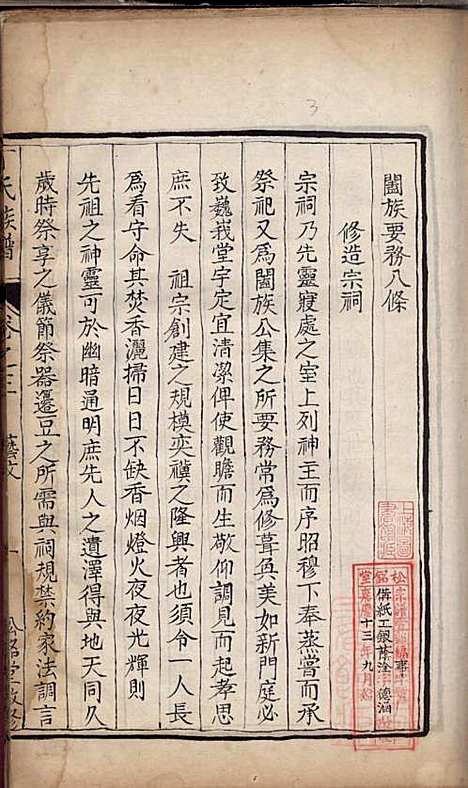 3
闔族要務八條
修造宗祠
宗祠乃先靈寢處之室上列神主而序昭穆下奉蒸嘗而承
祭祀又為闔族公集之所要務常為修葺奐美如新門庭必
致巍峩堂宇定宜清潔俾使觀瞻而生敬仰謁見而起孝思
庶不失　祖宗創建之規模奕禩之隆興者也須令一人長
為看守命其焚香灑掃日日不缺香烟燈火夜夜光輝則
先祖之神靈可於幽暗通明庶先人之遺澤得與地天同久
歲時祭享之儀節祭器籩豆之所需與祠規禁約家法謁言
氏族譜
卷之三
藝文
一